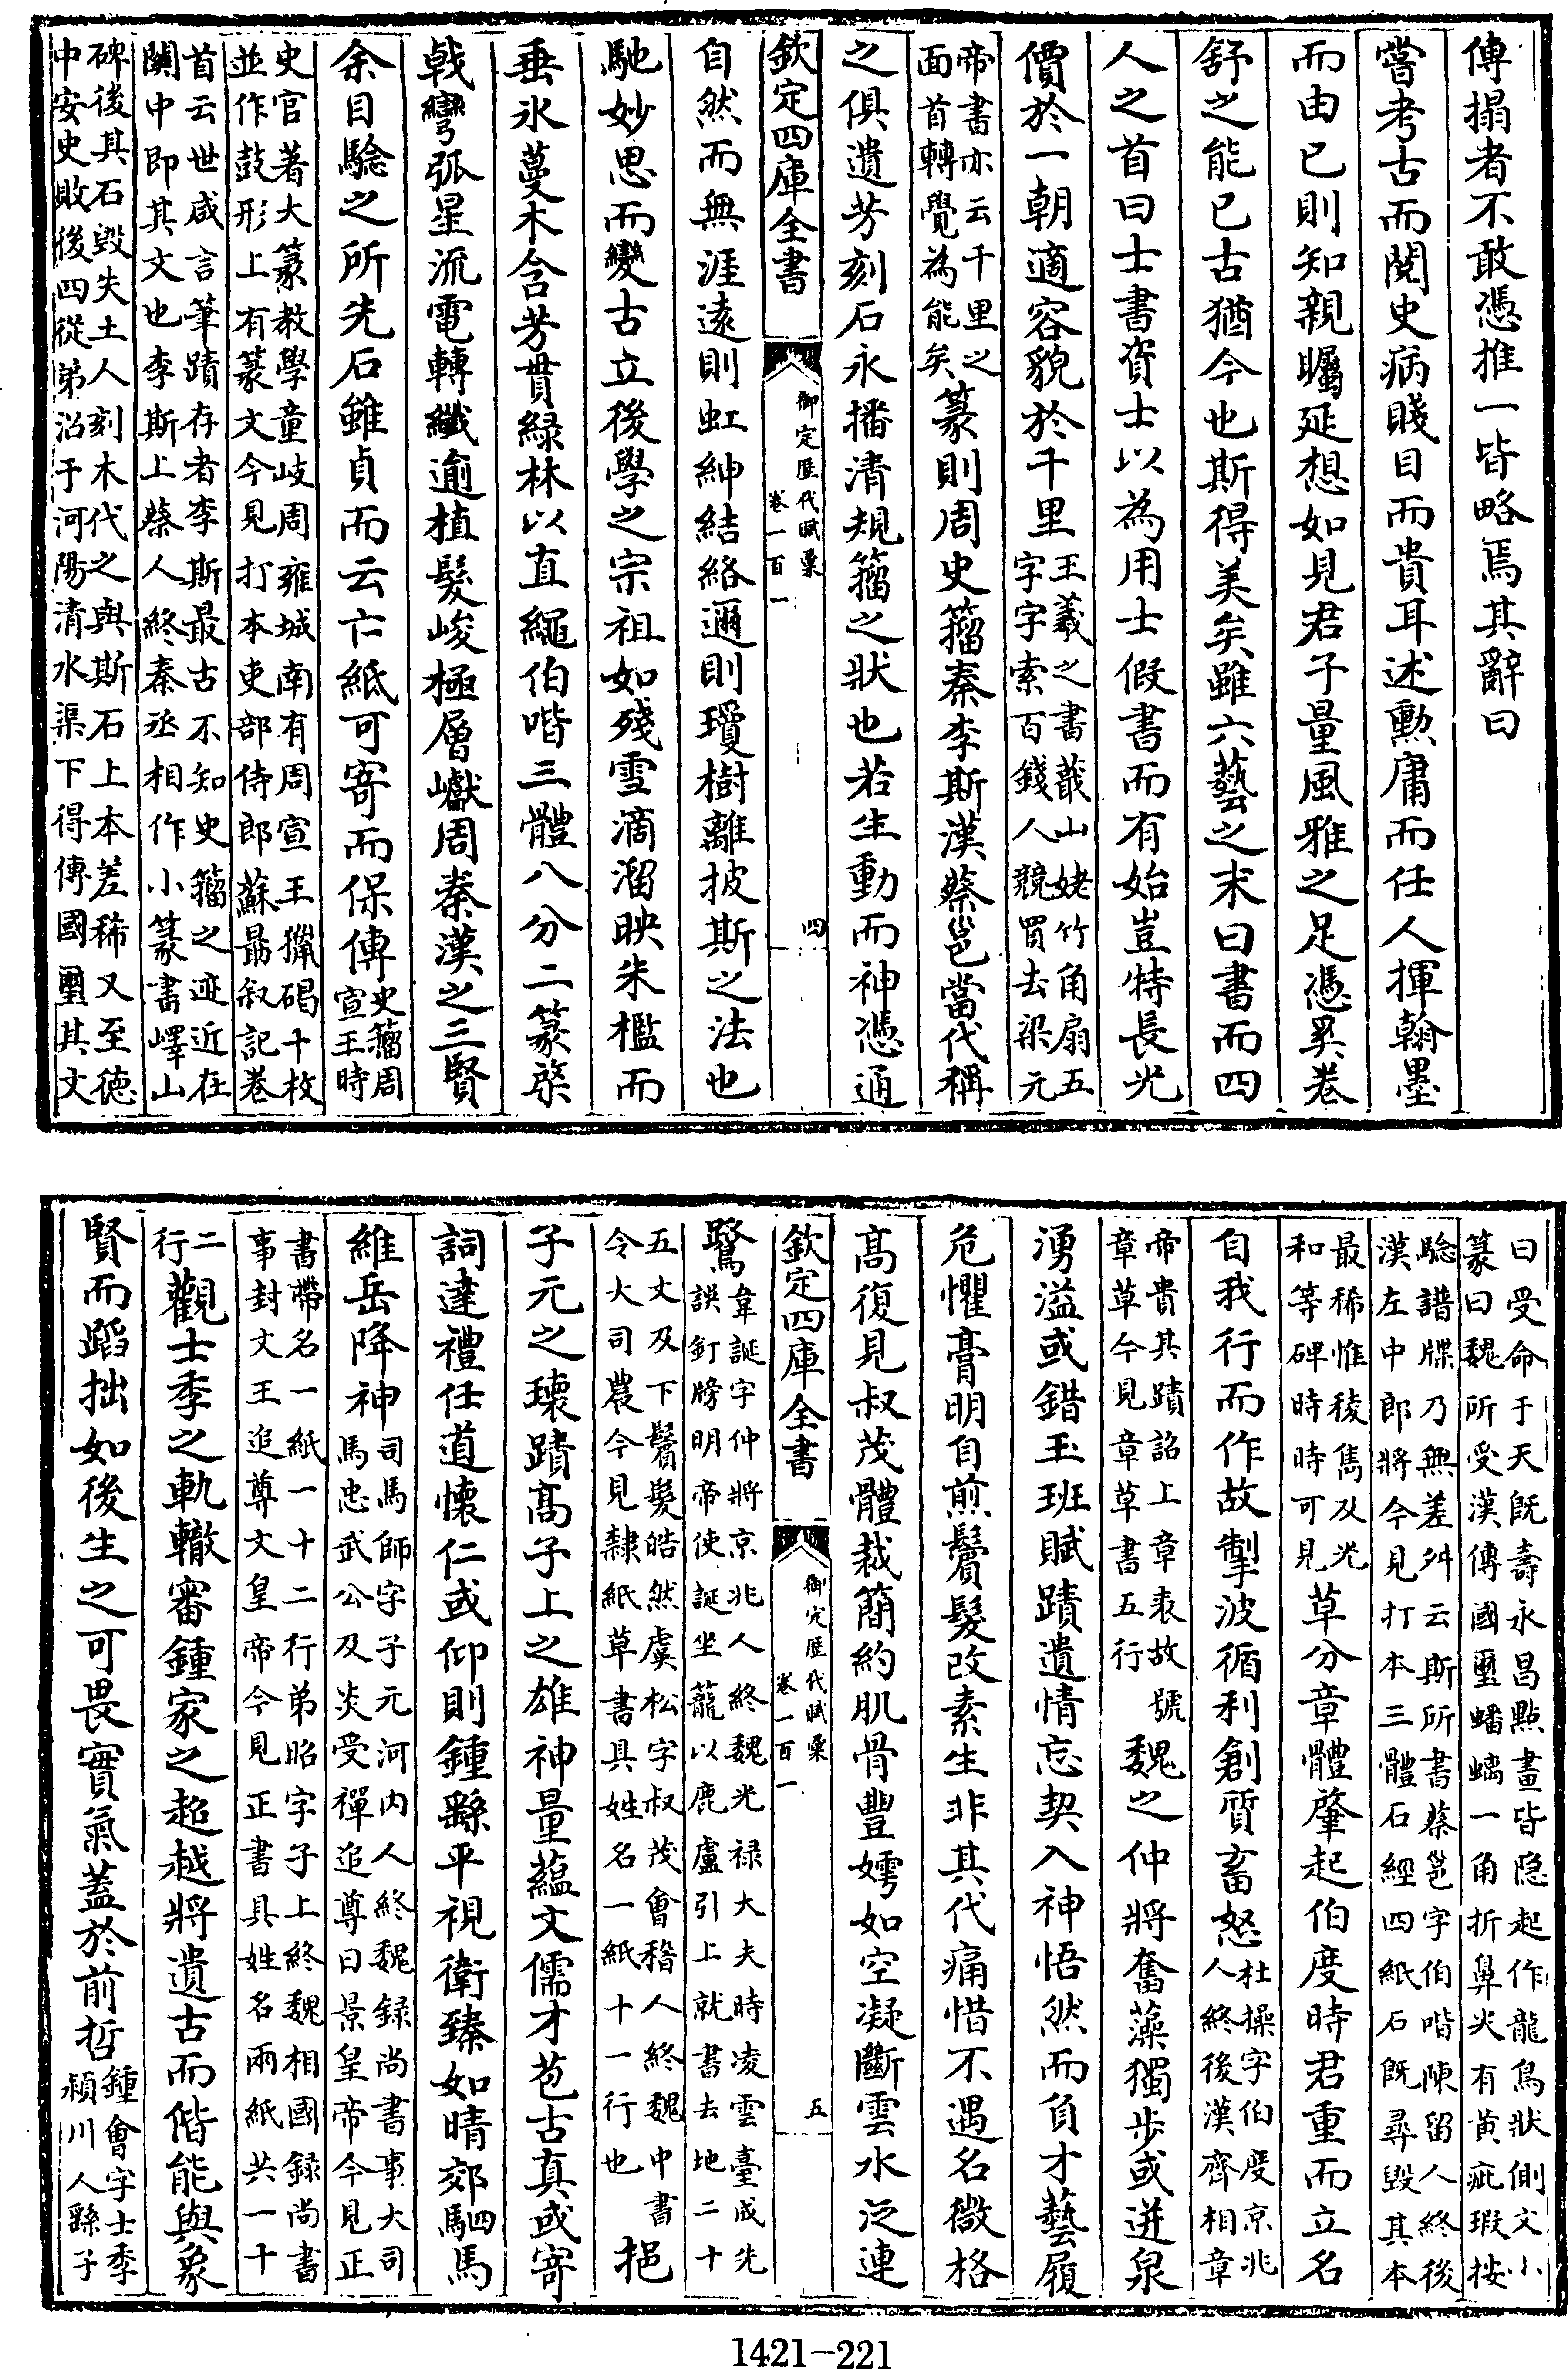 傳搨者不敢憑推一皆略焉其辭曰
嘗考古而閲史病賤目而貴耳述勲庸而任人揮翰墨
而由已則知親矚延想如見君子量風雅之足憑奚卷
舒之能已古猶今也斯得美矣雖六藝之末曰書而四
人之首曰士書資士以為用士假書而有始豈特長光
價於一朝適容貌於千里王羲之書蕺山姥竹角扇五字字索百錢人競買去梁元
帝書亦云千里之面首轉覺為能矣篆則周史籀秦李斯漢蔡邕當代稱
之俱遺芳刻石永播清規籀之狀也若生動而神憑通
欽定四庫全書 御定歷代賦彙 卷一百一 四
自然而無涯遠則虹紳結絡邇則瓊樹離披斯之法也
馳妙思而變古立後學之宗祖如殘雪滴溜映朱檻而
垂氷蔓木含芳貫緑林以直繩伯喈三體八分二篆棨
戟彎弧星流電轉纖逾植髮峻極層巘周秦漢之三賢
余目驗之所先石雖貞而云亡紙可寄而保傳史籀周宣王時
史官著大篆教學童岐周雍城南有周宣王獵碣十枚並作鼓形上有篆文今見打本吏部侍郎蘇朂叙記卷
首云世咸言筆蹟存者李斯最古不知史籀之迹近在關中即其文也李斯上蔡人終秦丞相作小篆書嶧山
碑後其石毀失土人刻木代之與斯石上本差稀又至徳中安史敗後四從弟沿于河陽清水渠下得傳國璽其文
曰受命于天既壽永昌點畫皆隱起作龍鳥狀側文小篆曰魏所受漢傳國璽蟠螭一角折鼻尖有黄疵瑕按
驗譜牒乃無差舛云斯所書蔡邕字伯喈陳留人終後漢左中郎將今見打本三體石經四紙石既尋毀其本
最稀惟稜雋及光和等碑時時可見草分章體肇起伯度時君重而立名
自我行而作故掣波循利創質畜怒杜操字伯度京兆人終後漢齊相章
帝貴其蹟詔上章表故號章草今見章草書五行魏之仲將奮藻獨步或迸泉
湧溢或錯玉班賦蹟遺情忘契入神悟然而負才藝履
危懼膏明自煎鬢髮改素生非其代痛惜不遇名微格
高復見叔茂體裁簡約肌骨豐嫮如空凝斷雲水泛連
欽定四庫全書 御定歷代賦彙 卷一百一 五
鷺韋誕字仲將京兆人終魏光禄大夫時凌雲臺成先誤釘牓明帝使誕坐籠以鹿盧引上就書去地二十
五丈及下鬢髮皓然虞松字叔茂會稽人終魏中書令大司農今見隸紙草書具姓名一紙十一行也挹
子元之瓌蹟高子上之雄神量藴文儒才苞古真或寄
詞達禮任道懷仁或仰則鍾繇平視衛臻如晴郊駟馬
維岳降神司馬師字子元河内人終魏録尚書事大司馬忠武公及炎受禪追尊曰景皇帝今見正
書帶名一紙一十二行弟昭字子上終魏相國録尚書事封文王追尊文皇帝今見正書具姓名兩紙共一十
二行觀士季之軌轍審鍾家之超越將遺古而偕能與象
賢而蹈拙如後生之可畏實氣蓋於前哲鍾會字士季潁川人繇子
1421-221